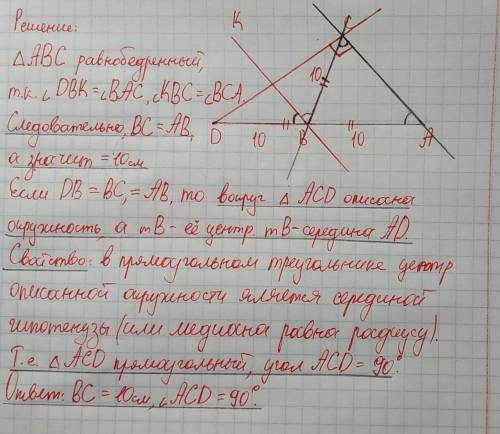 Решение:
△ABC равнобедренный,
т.к. ∠DBK=∠BAC, ∠KBC=∠BCA.
Следовательно, BC=AB,
а значит =10см
Если DB=BC,=AB, то вокруг △ ACD описана
окружность, а тB- её центр. тB-середина AD.
Свойство: в прямоугольном треугольнике центр
описанной окружности является серединой
гипотенузы (или медиана равна радиусу).
Т.е. △ACD прямоугольный, угол ACD = 90°.
Ответ: BC = 10см, ∠ACD = 90°.
K
C
10
D
B
A
10
10